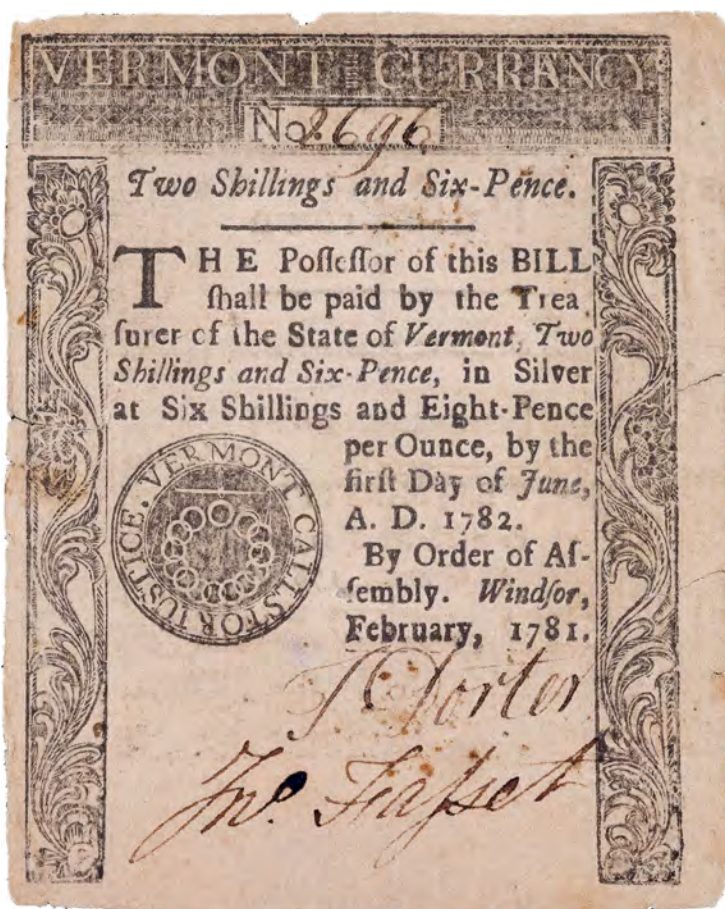 VERMONT CURRENCY
No. 2696
Two Shillings and Six-Pence.
THE Poſſeſſor of this BILL
ſhall be paid by the Trea
ſurer of the State of Vermont, Two
Shillings and Six-Pence, in Silver
at Six Shillings and Eight-Pence
per Ounce, by the
firſt Day of June,
A. D. 1782.
By Order of Aſ-
ſembly. Windſor,
February, 1781.
VERMONT CALLS FOR JUSTICE.
T Porter
Jnº Faſset